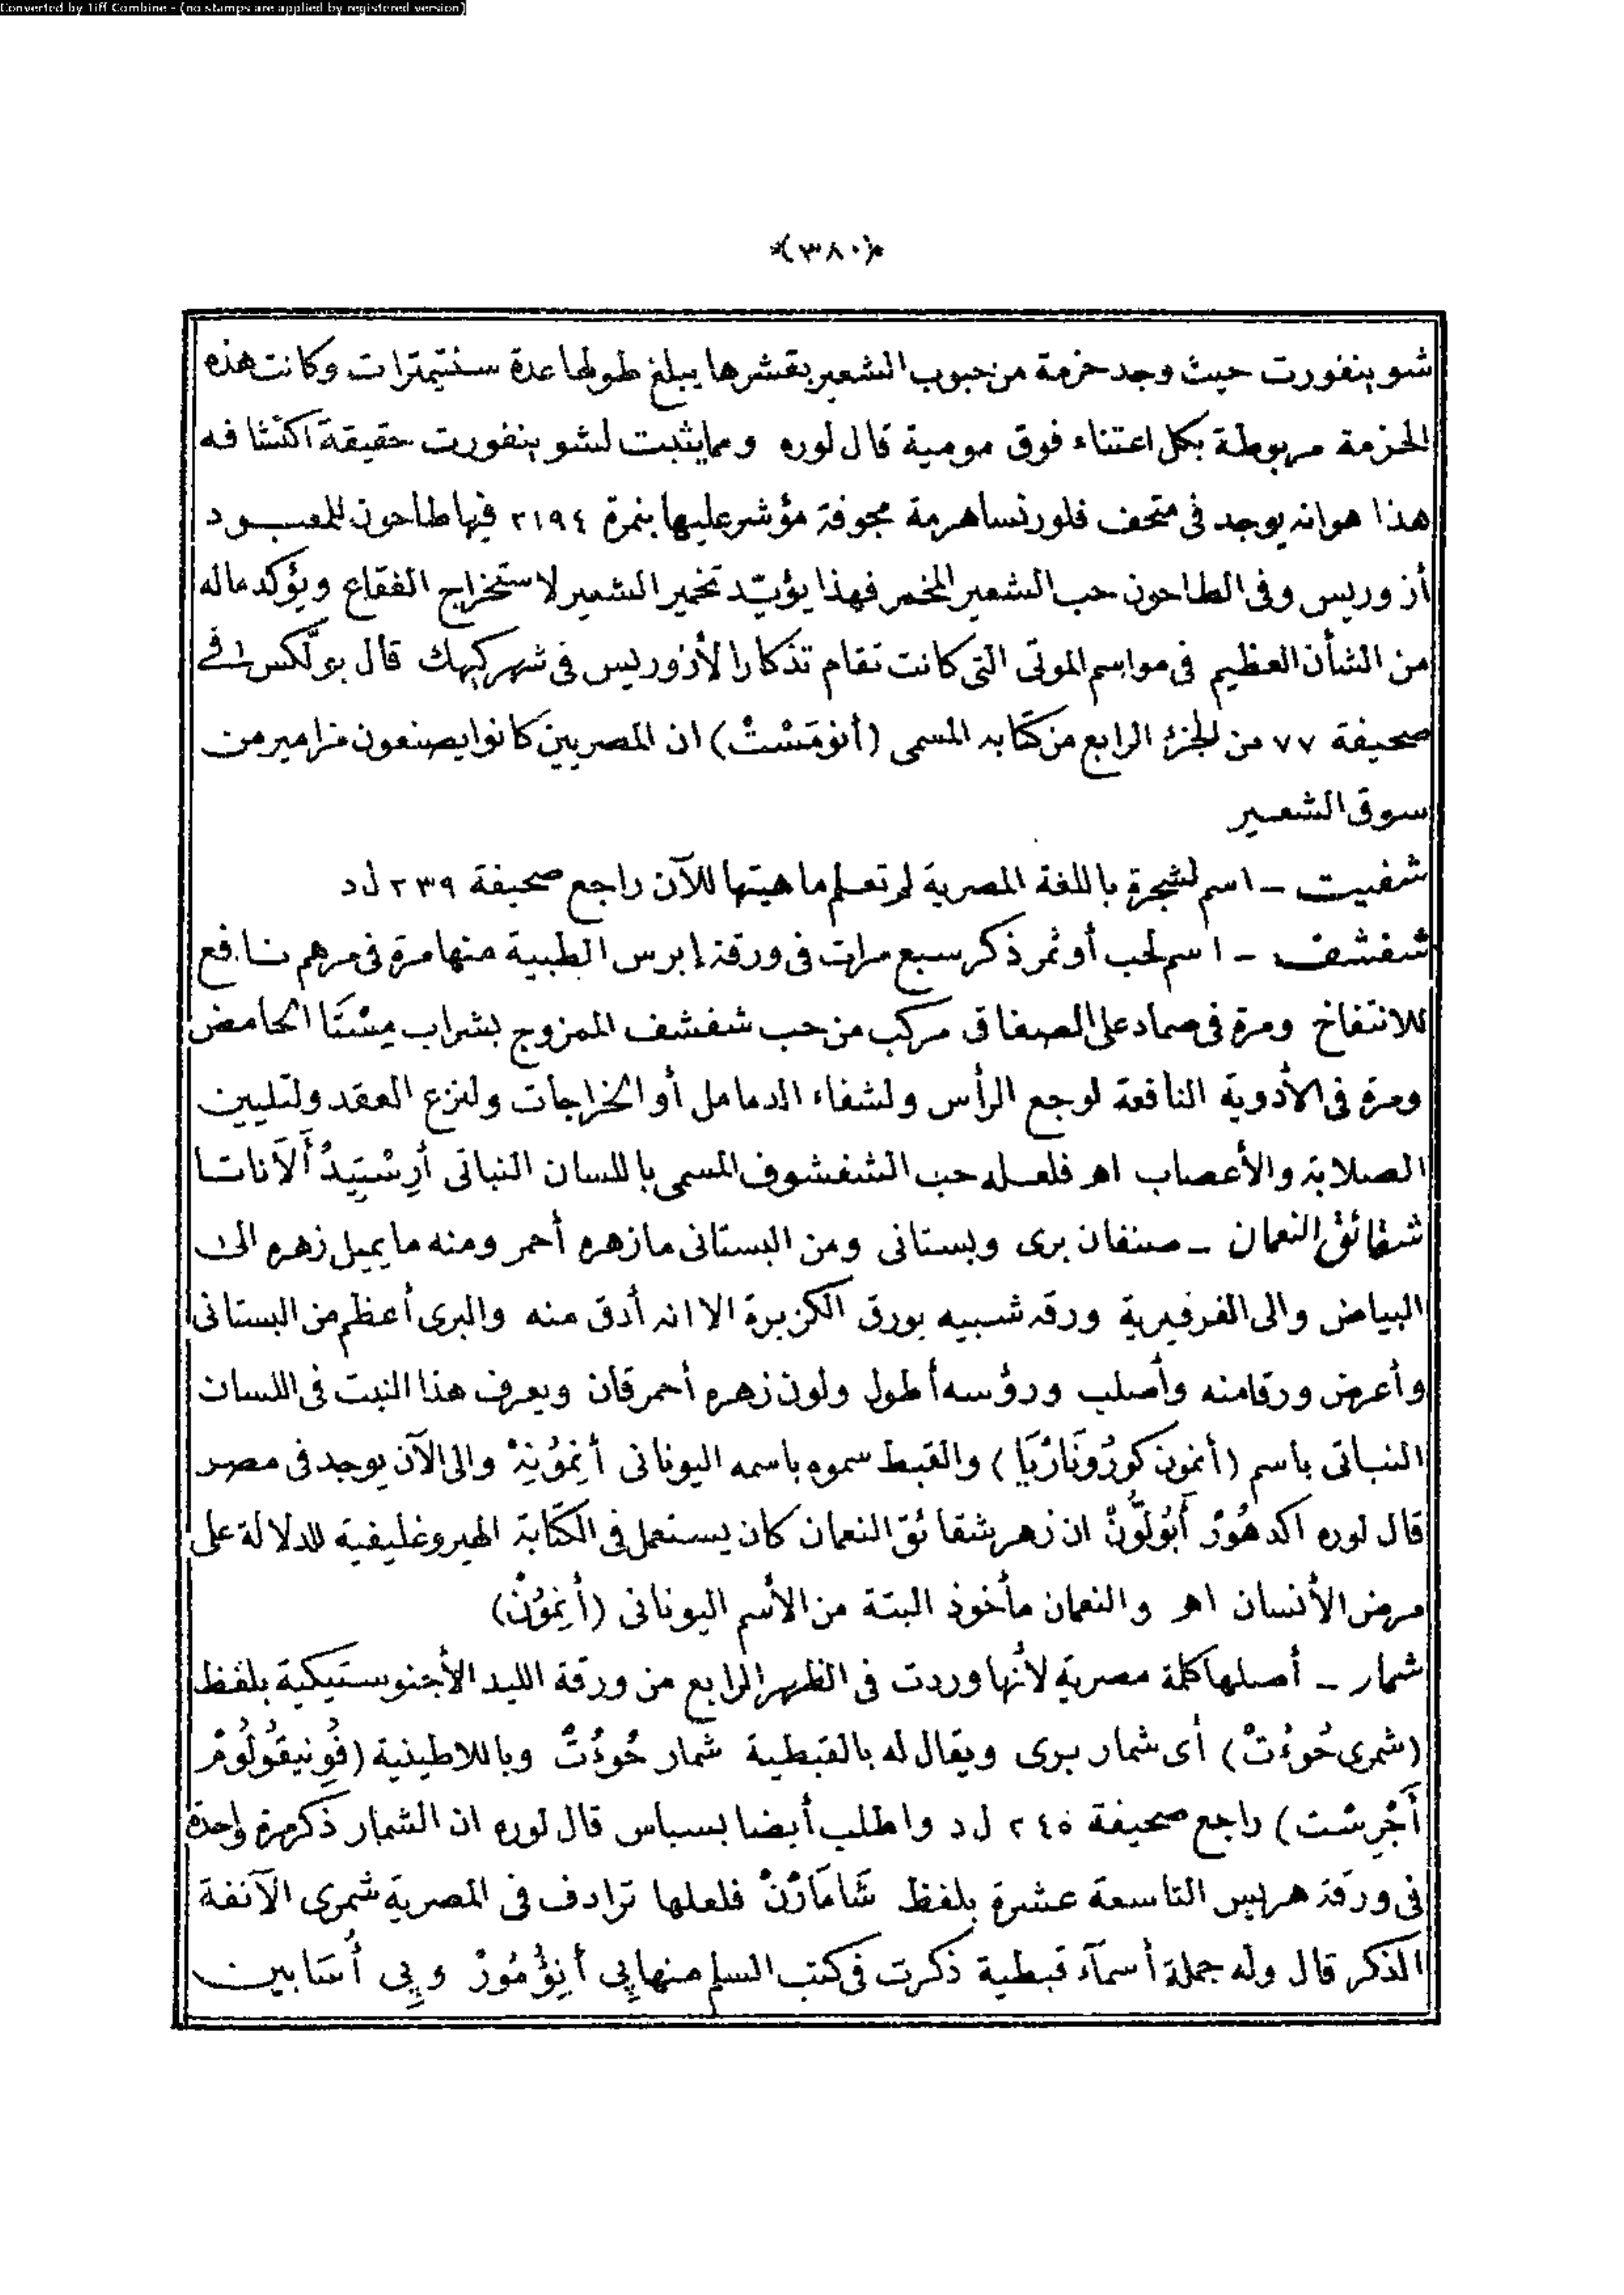 Converted by Tiff Combine - (no stamps are applied by registered version)
﴿٣٨٠﴾
شو ينفورت حيث وجد حزمة من حبوب الشعير بقشرها يبلغ طولها عدة سنتيمترات وكانت هذه
الحزمة مربوطة بكل اعتناء فوق مومية قال لوره ومما يثبت لشو ينفورت حقيقة اكتشافه
هذا هو انه يوجد فى متحف فلورنسا هرمة مجوفة مؤشر عليها بنمرة ٢١٩٤ فيها طاحون للمعبود
أزوريس وفى الطاحون حب الشعير المخمر فهذا يؤيد تخمير الشعير لاستخراج الفقاع ويؤكد ماله
من الشأن العظيم فى مواسم الموتى التى كانت تقام تذكارا لأزوريس فى شهر كيهك قال بولّكس فى
صحيفة ٧٧ من الجزء الرابع من كتابه المسمى (أنومَسْتْ) ان المصريين كانوا يصنعون مزامير من
سوق الشعير
شفيت ـ اسم لشجرة باللغة المصرية لم تعلم ماهيتها للآن راجع صحيفة ٢٣٩ ل د
شفشف ـ اسم لحب أو ثمر ذكر سبع مرات فى ورقة إبرس الطبية منها مرة فى مرهم نافع
للانتفاخ ومرة فى ضماد على الصفاق مركب من حب شفشف الممزوج بشراب مِسْتَا الحامض
ومرة فى الأدوية النافعة لوجع الرأس ولشفاء الدمامل أو الخراجات ولنزع العقد ولتليين
الصلابة والأعصاب اهـ فلعله حب الشفشوف المسمى باللسان النباتى أَرِسْتِيدْ أَلَانَاتَا
شقائق النعمان ـ صنفان برى وبستانى ومن البستانى مازهره أحمر ومنه ما يميل زهره الى
البياض والى الفرفيرية ورقه شبيه بورق الكزبرة الا انه أدق منه والبرى أعظم من البستانى
وأعرض ورقا منه وأصلب ورؤسه أطول ولون زهره أحمر قان ويعرف هذا النبت فى اللسان
النباتى باسم (أنمون كورُونَارْيَا) والقبط سموه باسمه اليونانى أَنِمُونِهْ والى الآن يوجد فى مصر
قال لوره اكد هُورْ أَبُولُّونْ ان زهر شقائق النعمان كان يستعمل فى الكتابة الهيروغليفية للدلالة على
مرض الأنسان اهـ والنعمان مأخوذ البتة من الأسم اليونانى (أَنِمُونْ)
شمار ـ أصلها كلمة مصرية لأنها وردت فى الظهر الرابع من ورقة الليد الأجنوستيكية بلفظ
(شمرى حُوءُتْ) أى شمار برى ويقال له بالقبطية شمار حُوءُتْ وباللاطينية (فُونيقُولُومْ
أَجْرِسْت) راجع صحيفة ٢٤٥ ل د واطلب أيضا بسباس قال لوره ان الشمار ذكر مرة واحدة
فى ورقة هريس التاسعة عشرة بلفظ شَامَارْنْ فلعلها ترادف فى المصرية شمرى الآنفة
الذكر قال وله جملة أسمآء قبطية ذكرت فى كتب السلم منها پِى أَنِؤُمُونْ و پِى أُسَابين